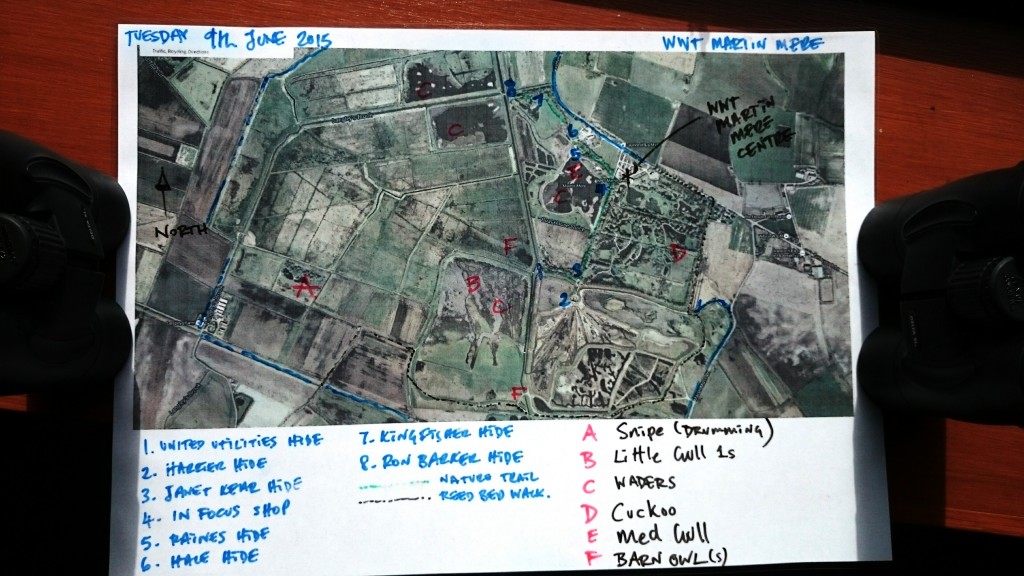 TUESDAY 9th JUNE 2015
WWT MARTIN MERE
WWT
MARTIN
MERE
CENTRE
NORTH
C
C
8
7
6
5
E
C
F
1
3
D
A
B
C
2
F
1. UNITED UTILITIES HIDE
2. HARRIER HIDE
3. JANET KEAR HIDE
4. IN FOCUS SHOP
5. RAINES HIDE
6. HALE HIDE
7. KINGFISHER HIDE
8. RON BARKER HIDE
NATURE TRAIL
REED BED WALK.
A Snipe (DRUMMING)
B Little Gull 1s
C WADERS
D Cuckoo
E Med Gull
F BARN OWL(s)